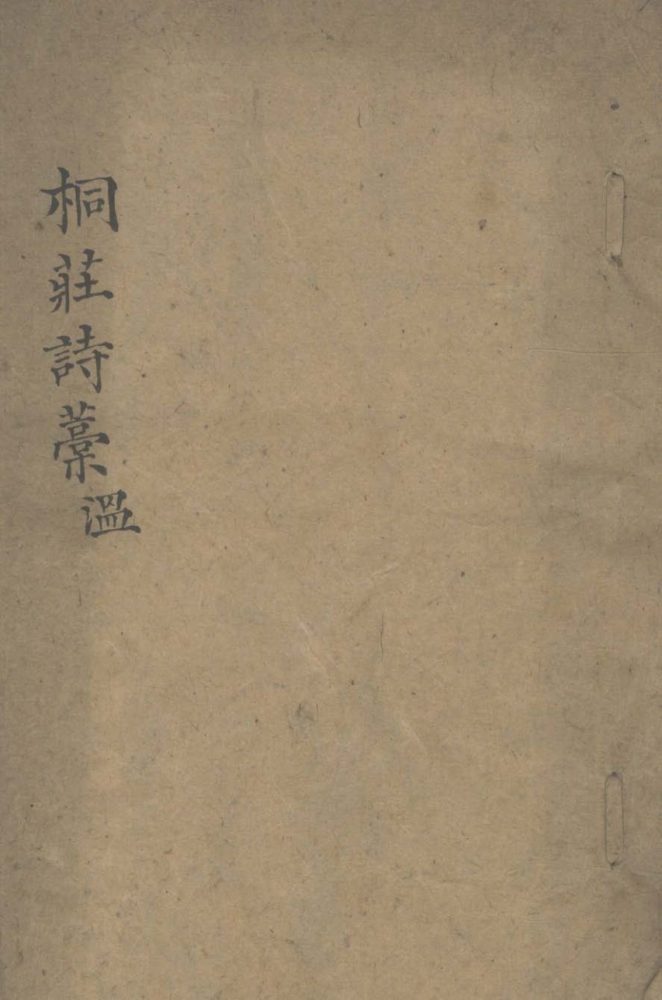 桐莊詩藁
溫